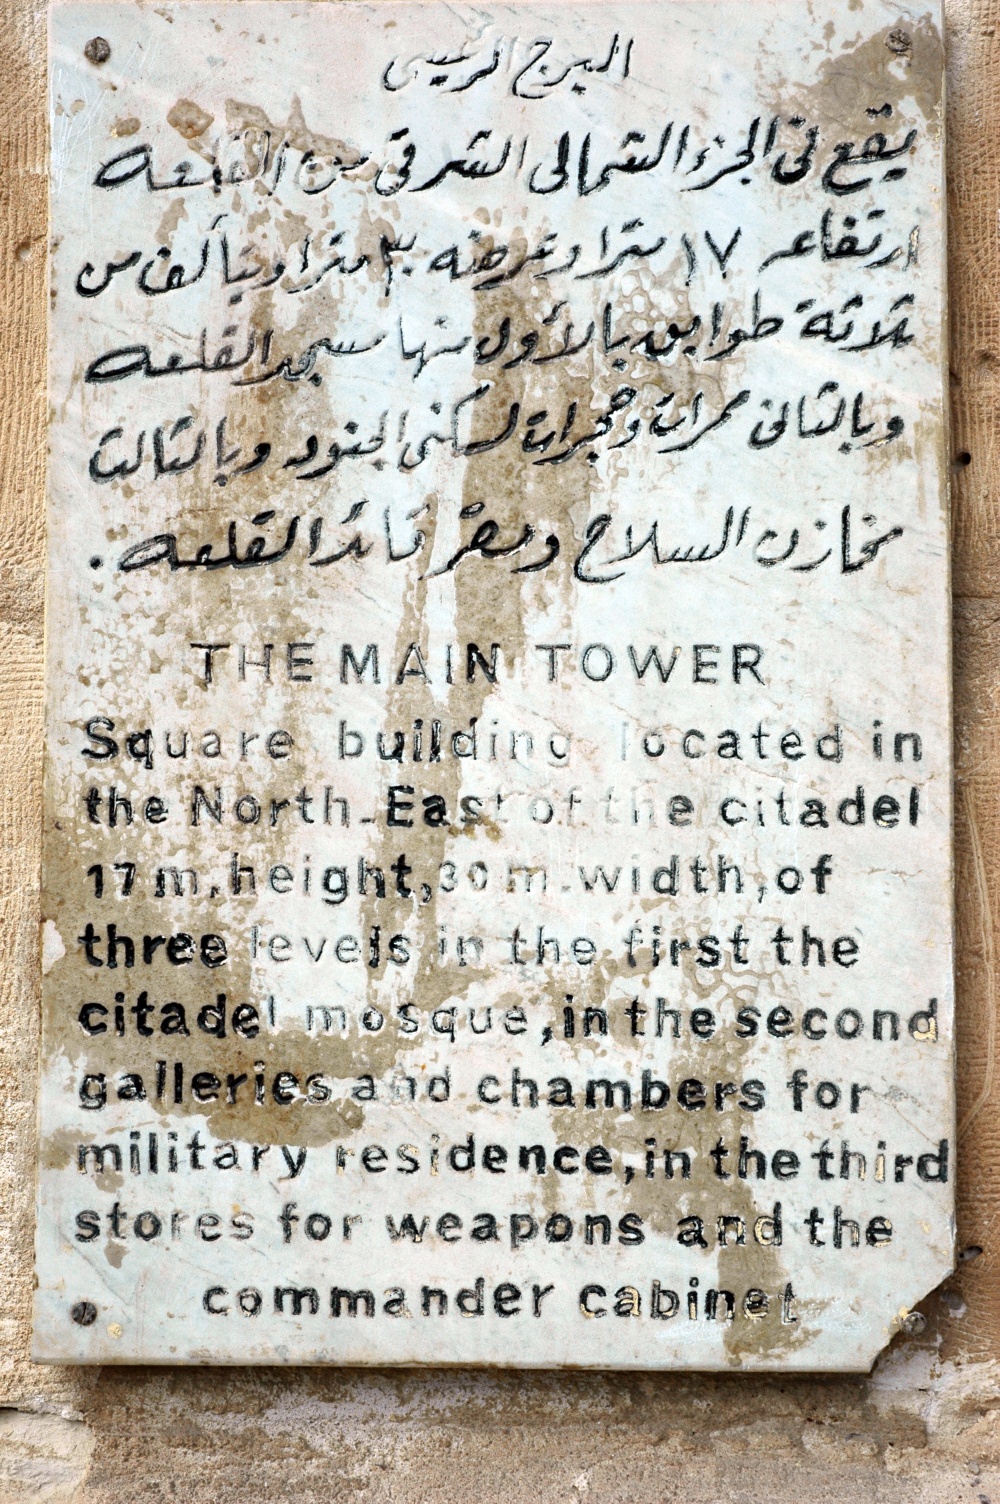 البرج الرئيسى
يقع فى الجزء الشمالى الشرقى من القلعه
ارتفاعه ١٧ مترا وعرضه ٣٠ مترا ويتألف من
ثلاثة طوابق بالأول منها مسجد القلعه
وبالثانى ممرات وحجرات لسكنى الجنود وبالثالث
مخازن السلاح ومقر قائد القلعه .
THE MAIN TOWER
Square building located in
the North-East of the citadel
17 m. height, 30 m. width, of
three levels in the first the
citadel mosque, in the second
galleries and chambers for
military residence, in the third
stores for weapons and the
commander cabinet